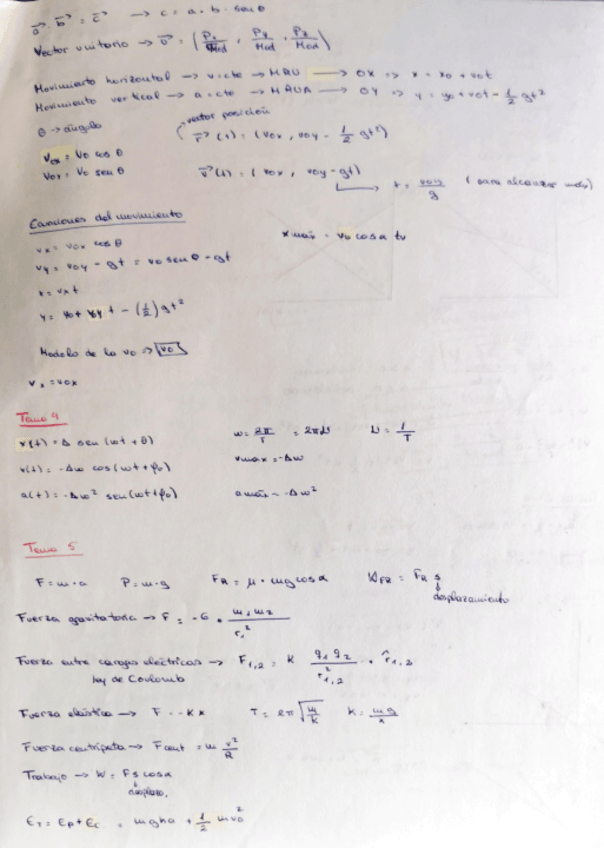 a⃗ · b⃗ = c⃗ → c = a · b · senθ
Vector unitario → v⃗ = (Px/Mod, Py/Mod, Pz/Mod)
Movimiento horizontal → v = cte → MRU → OX => x = x0 + v0t
Movimiento vertical → a = cte → MRUA → OY => y = y0 + v0t - 1/2 gt²
θ → ángulo
vector posición
r⃗(t) = (v0x, v0y - 1/2 gt²)
v0x = v0 cos θ
v0y = v0 sen θ
v⃗(t) = (v0x, v0y - gt)
t = v0y/g (para alcanzar
Ecuaciones del movimiento
vx = v0x cos θ
xmáx = v0 cosα tv
vy = v0y - gt = v0 sen θ - gt
x = vx t
y = y0 + v0y t - (1/2) gt²
Modelo de la v0 => |v0|
vx = v0x
Tema 4
x(t) = A sen (ωt + θ)
ω = 2π/T = 2πν
ν = 1/T
v(t) = -Aω cos(ωt + φ0)
vmax = -Aω
a(t) = -Aω² sen(ωt + φ0)
amáx = -Aω²
Tema 5
F = m · a
P = m · g
FR = μ · mg cosα
WFR = FR s
desplazamiento
Fuerza gravitatoria → F = -G · m1 m2/r1²
Fuerza entre cargas eléctricas → F1,2 = K q1 q2/r²1,2 · r̂1,2
ley de Coulomb
Fuerza elástica → F = -Kx
T = 2π√(m/K)
K = mg/x
Fuerza centrípeta → Fcent = m v²/R
Trabajo → W = Fs cosα
desplazo.
ET = EP + EC = mgha + 1/2 mv0²